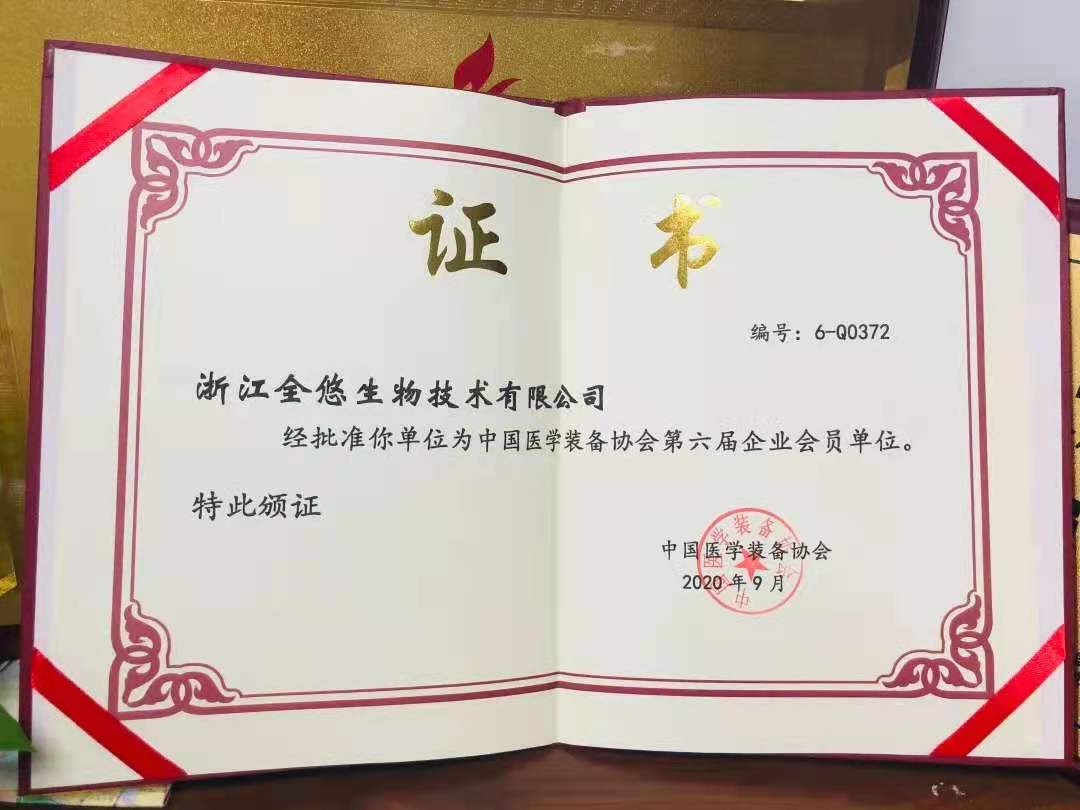 证 书
编号：6-Q0372
浙江全悠生物技术有限公司
经批准你单位为中国医学装备协会第六届企业会员单位。
特此颁证
中国医学装备协会
2020年9月
中国医学装备协会